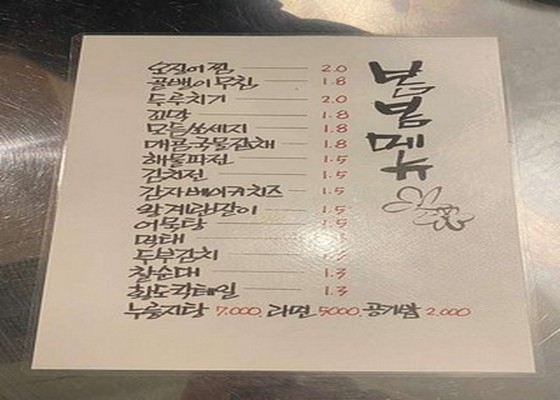 오징어찜 2.0
골뱅이무침 1.8
두루치기 2.0
꼬막 1.8
모듬쏘세지 1.8
매콤국물잡채 1.8
해물파전 1.5
김치전 1.5
감자베이컨치즈 1.5
왕계란말이 1.5
어묵탕 1.5
먹태
두부김치
찰순대 1.3
황도칵테일 1.3
누룽지탕 7.000, 라면 5000, 공기밥 2.000